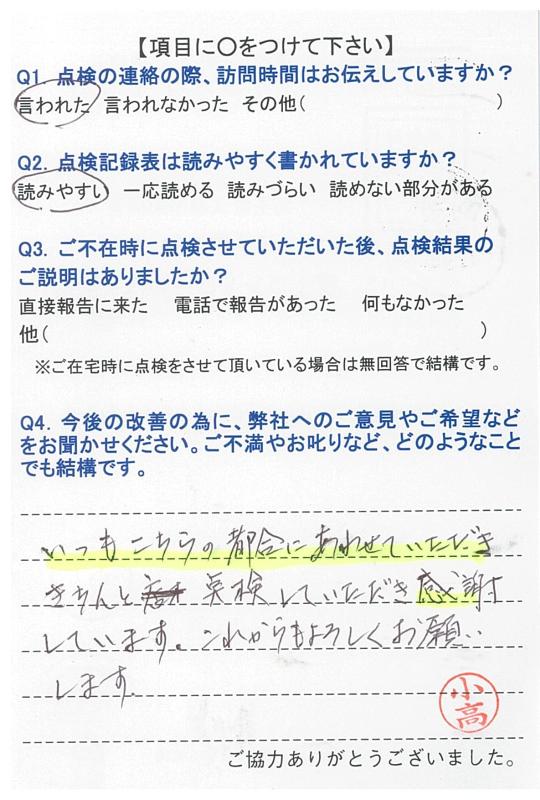 【項目に〇をつけて下さい】
Q1. 点検の連絡の際、訪問時間はお伝えしていますか？
言われた 言われなかった その他（　　　）
Q2. 点検記録表は読みやすく書かれていますか？
読みやすい 一応読める 読みづらい 読めない部分がある
Q3. ご不在時に点検させていただいた後、点検結果の
ご説明はありましたか？
直接報告に来た 電話で報告があった 何もなかった
他（　　　）
※ご在宅時に点検をさせて頂いている場合は無回答で結構です。
Q4. 今後の改善の為に、弊社へのご意見やご希望など
をお聞かせください。ご不満やお叱りなど、どのようなこと
でも結構です。
いつもこちらの都合にあわせていただき
きちんと点検していただき感謝
しています。これからもよろしくお願い
します。
小高
ご協力ありがとうございました。